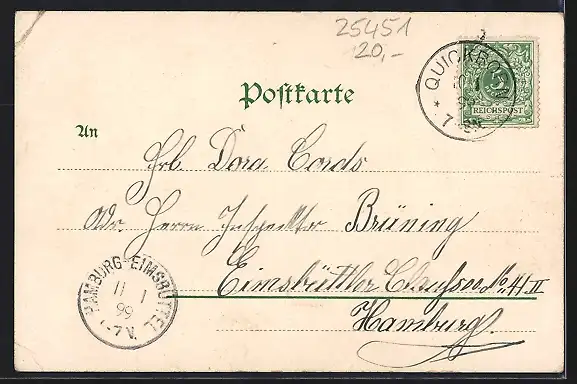 25451
20,-
QUICKBO
5
REICHSPOST
Postkarte
An
Frl. Dora Cords
Adr. Herrn Inspektor Brüning
Eimsbüttler Chaussee No. 41 II
Hamburg.
HAMBURG-EIMSBÜTTEL
11 1
99